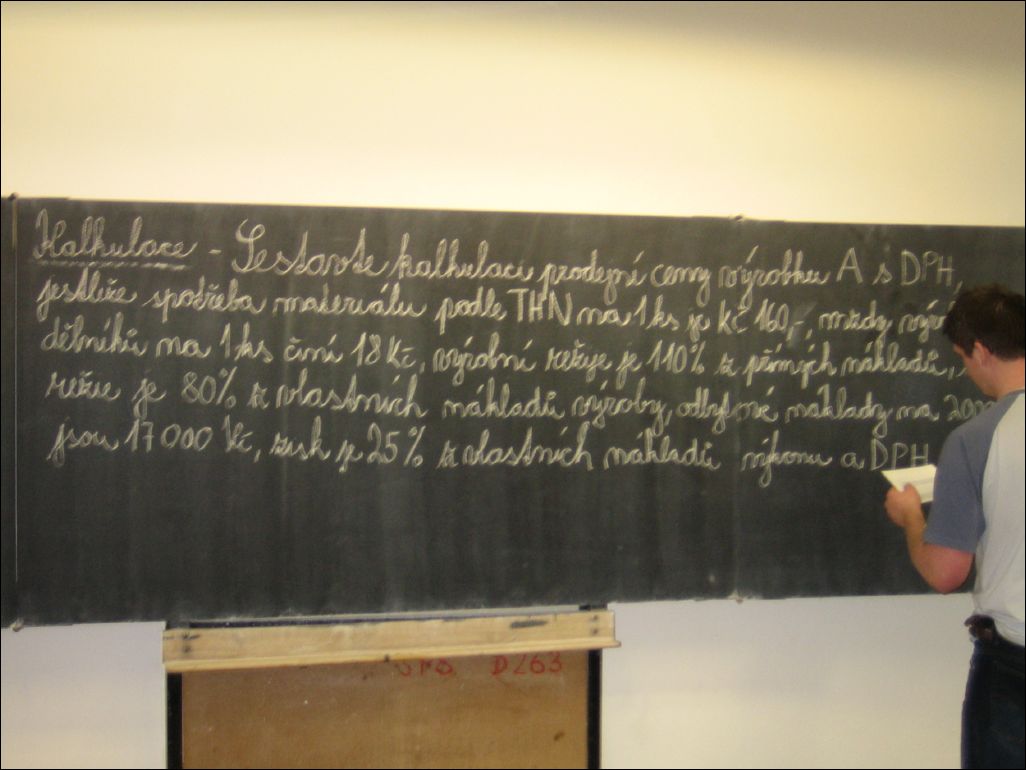 Kalkulace - Sestavte kalkulaci prodejní ceny výrobku A s DPH,
jestliže spotřeba materiálu podle THN na 1 ks je Kč 160,-, mzdy
dělníků na 1 ks činí 18 Kč, výrobní režije je 110% z přímých nákladů,
režie je 80% z vlastních nákladů výroby, odbytové náklady na
jsou 17 000 Kč, zisk je 25% z vlastních nákladů výkonu a DPH
D263